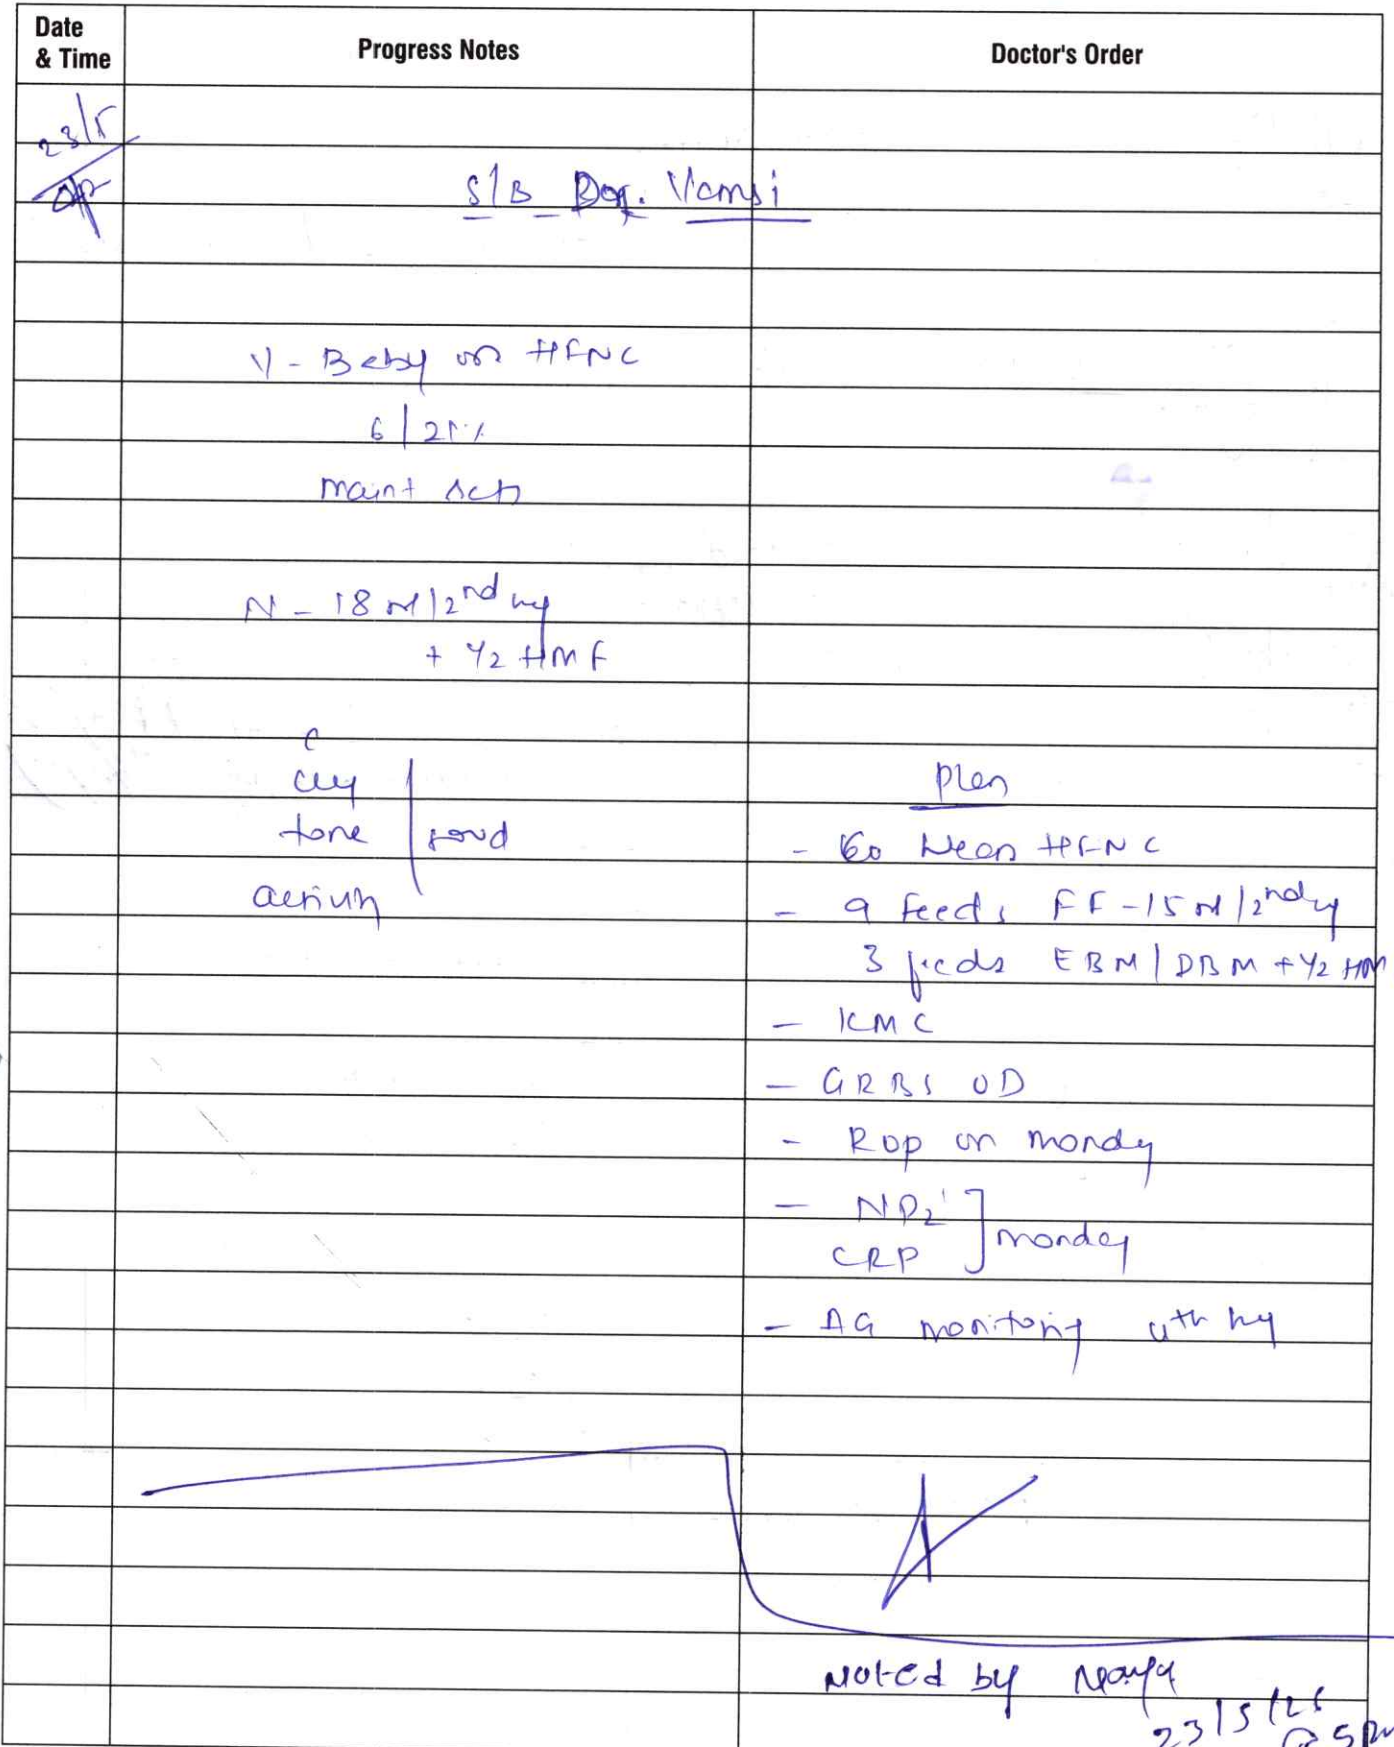 Date & Time
Progress Notes
Doctor's Order
23/5
S/B Dr. Vamsi
V - Baby on HFNC
6 | 21%
maint
N - 18 ml/2nd hry
+ 1/2 HMF
C
cry
tone good
activity
Plan
- wean HFNC
- 9 feeds FF - 15 ml/2nd hry
3 feeds EBM/DBM + 1/2 HM
- KMC
- GRBS OD
- ROP on monday
- NP2
CRP ] monday
- AG monitoring 4th hry
Noted by
23/5/25
@ 5pm